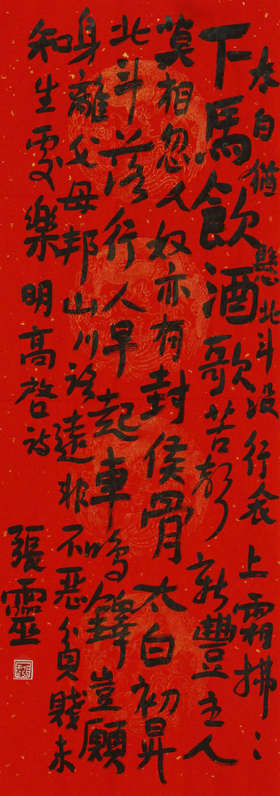 太白猶懸北斗沒行衣上霜拂〻
下馬飲酒歌苦聲新豐主人
莫相忽人奴亦有封侯骨太白初昇
北斗落行人早起車鳴鐸豈願
身離父母邦山川路遠非不惡貧賤未
知生處樂明高啓詩
張靈